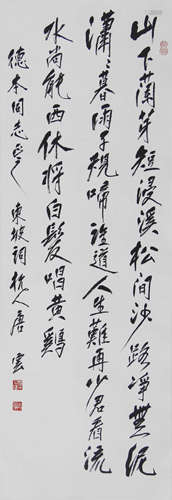 山下蘭芽短浸溪松間沙路淨無泥
瀟瀟暮雨子規啼誰道人生難再少君看流
水尚能西休將白髮唱黃鷄
德本同志正之東坡詞杭人唐雲